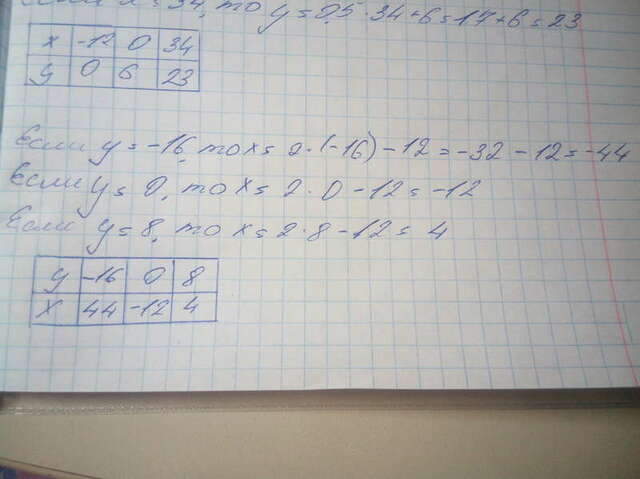 Если x = 34, то y = 0,5 · 34 + 6 = 17 + 6 = 23
x -12 0 34
y 0 6 23
Если y = -16, то x = 2 · (-16) - 12 = -32 - 12 = -44
Если y = 0, то x = 2 · 0 - 12 = -12
Если y = 8, то x = 2 · 8 - 12 = 4
y -16 0 8
x 44 -12 4